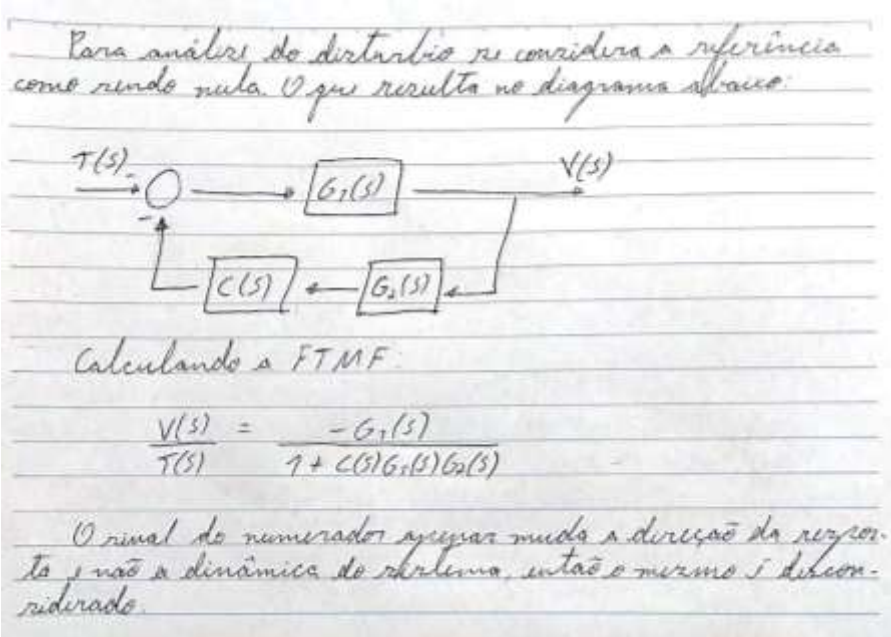 Para análise do disturbio se considera a referência
como sendo nula. O que resulta no diagrama abaixo:
T(S) - G1(S) V(S)
-
C(S) G2(S)
Calculando a FTMF:
V(S) = - G1(S)
T(S) 1 + C(S)G1(S)G2(S)
O sinal do numerador apenas muda a direção da respos-
ta e não a dinâmica do sistema, então o mesmo é descon-
siderado.